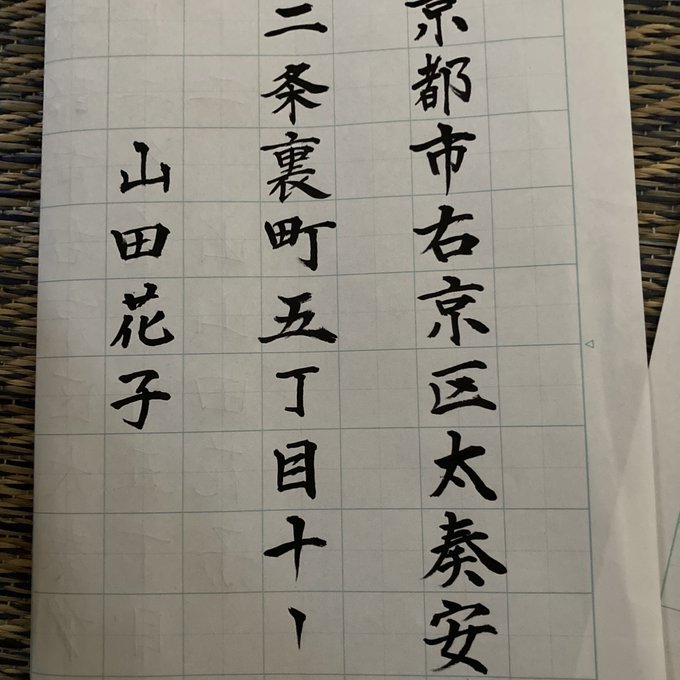 京都市右京区太奏安
二条裏町五丁目十一
山田花子